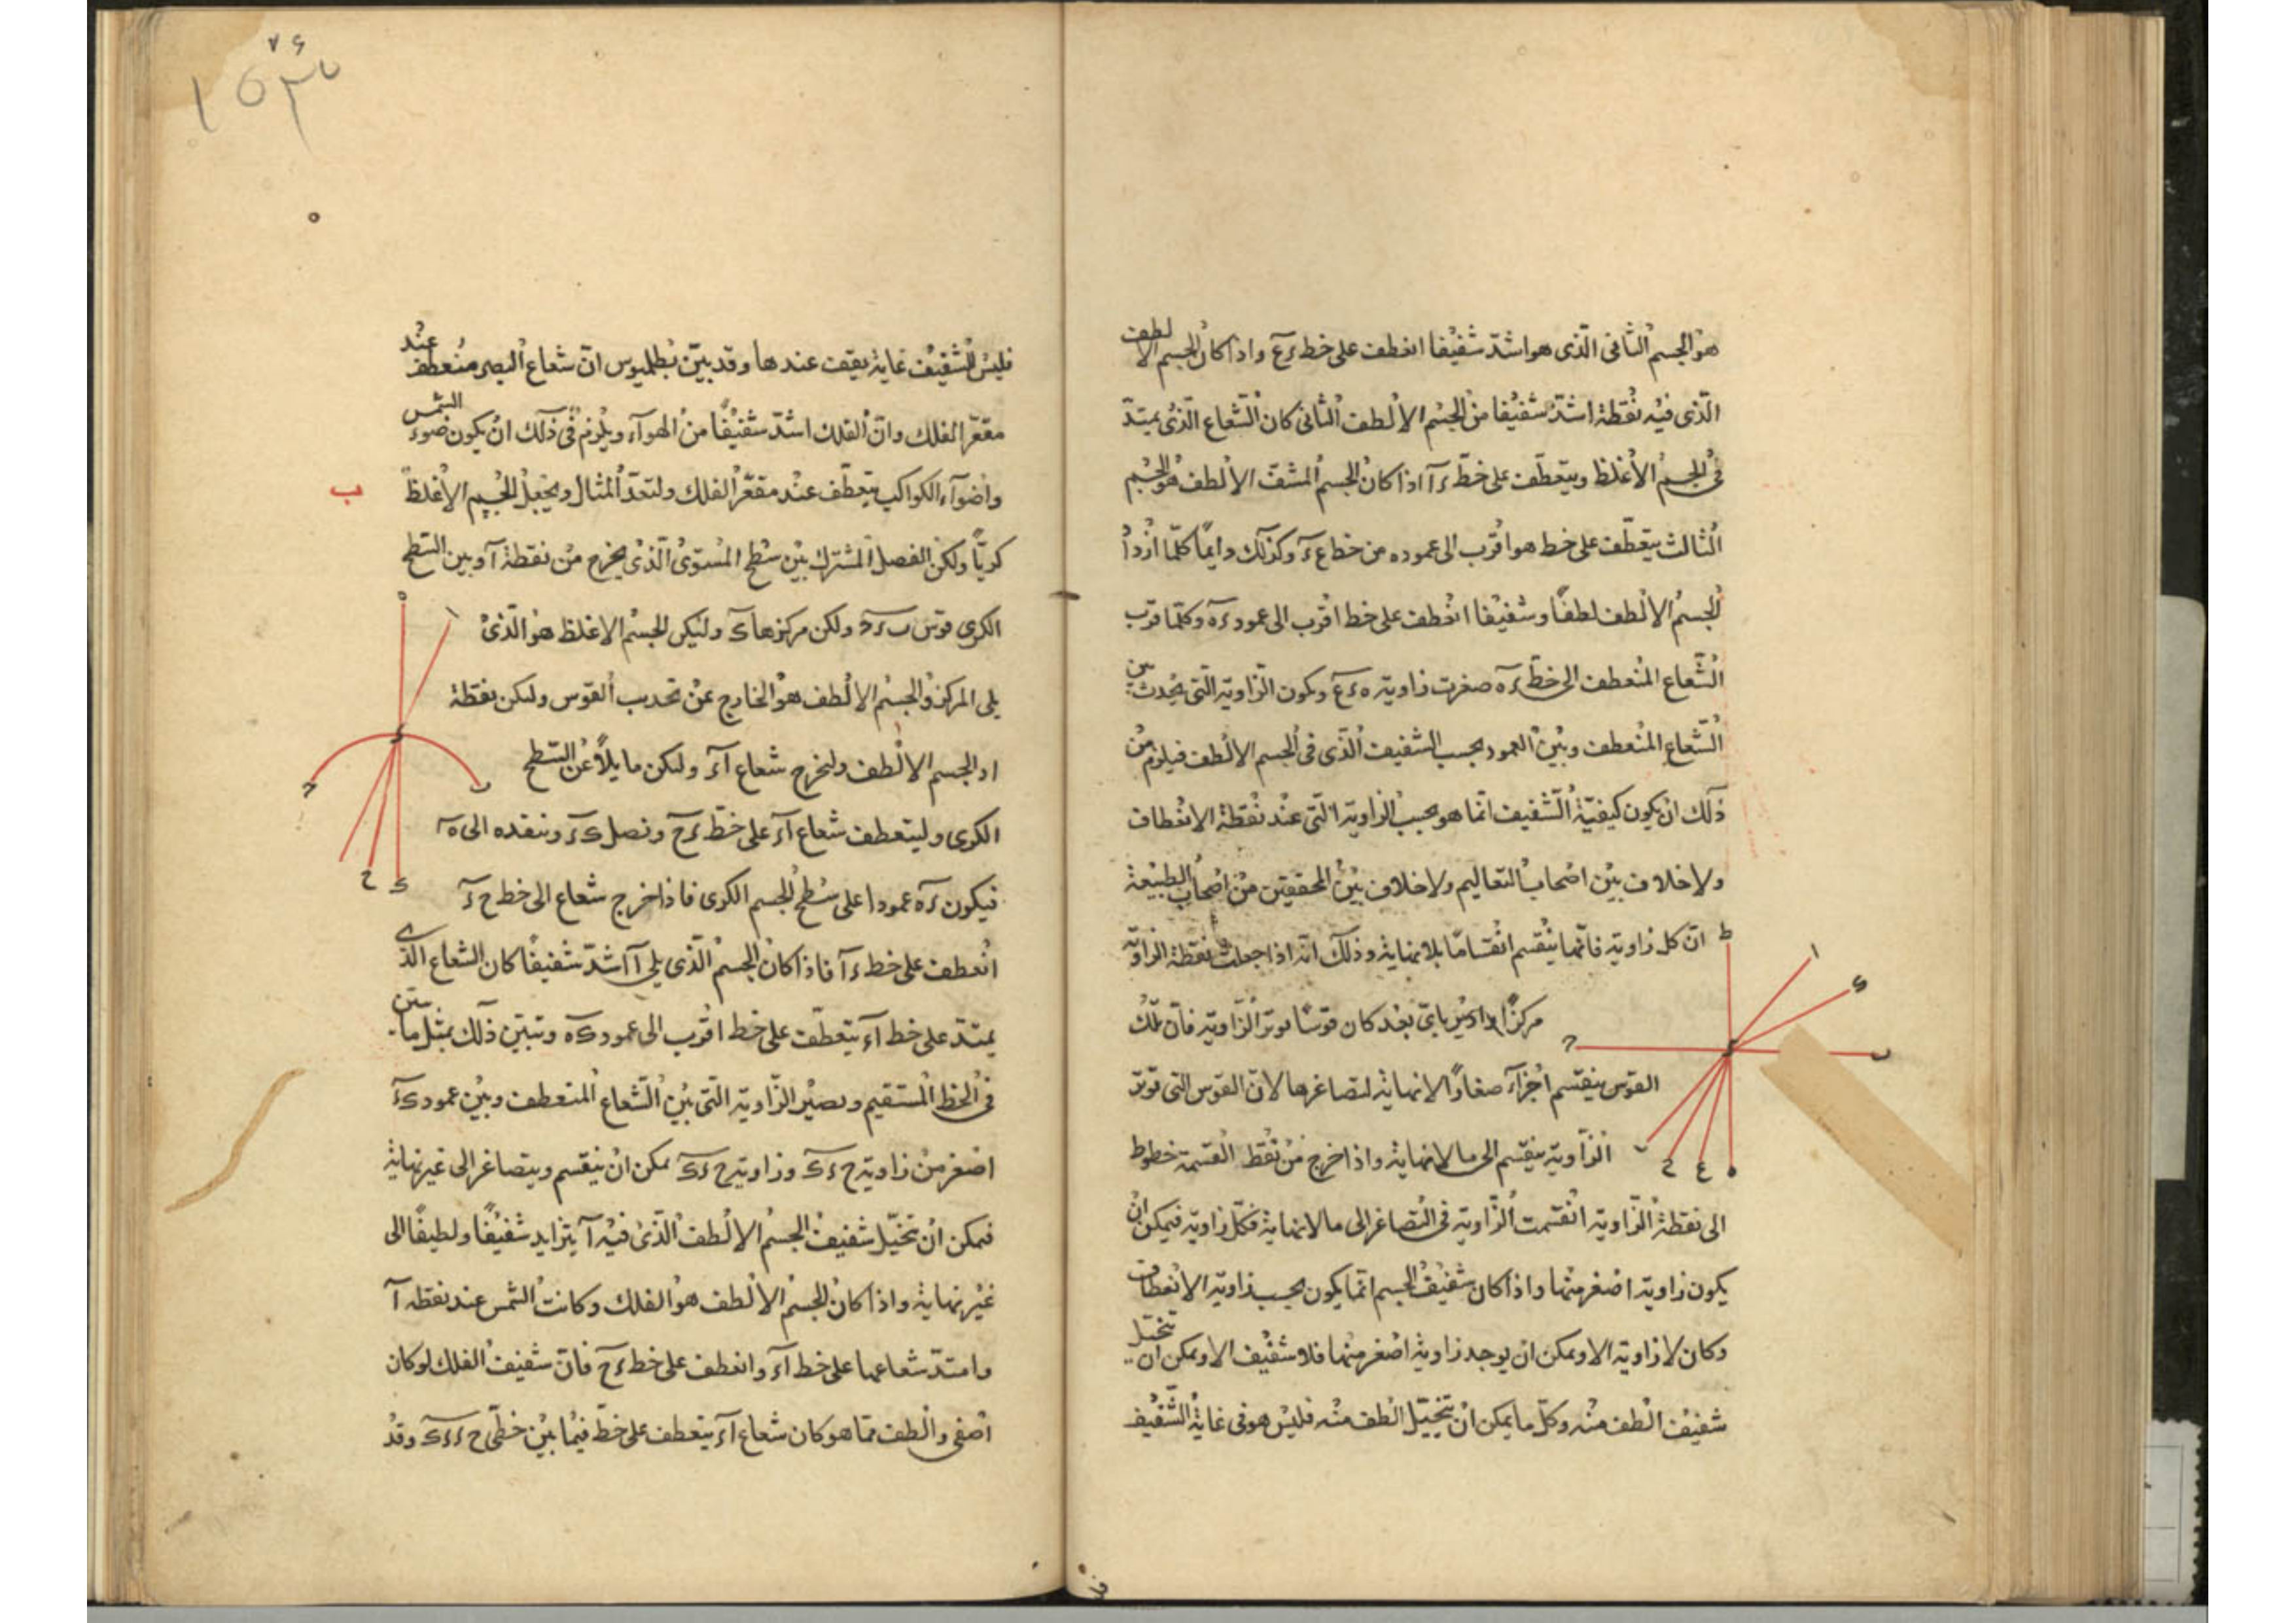 هو الجسم الثانى الذى هو اشد شفيفا انعطف على خط ءع واذا كان الجسم الالطف
الذى فيه نقطة اشد شفيفا من الجسم الالطف الثانى كان الشعاع الذى يمتد
فى الجسم الأغلظ وينعطف على خط ءآ اذا كان الجسم المشف الالطف هو الجسم
الثالث ينعطف على خط هو اقرب الى عموده من خط ع ء وكذلك دايما كلما ازداد
الجسم الالطف لطفا وشفيفا انعطف على خط اقرب الى عمود ءه وكلما قرب
الشعاع المنعطف الى خط ءه صغرت زاوية ه ء ع وتكون الزاوية التى يحدث بين
الشعاع المنعطف وبين العمود بحسب الشفيف الذى فى الجسم الالطف فيلزم من
ذلك ان يكون كيفية الشفيف انما هو بحسب الزاوية التى عند نقطة الانعطاف
ولا خلاف بين اصحاب التعاليم ولا خلاف بين المحققين من اصحاب الطبيعة
ان كل زاوية فانها ينقسم انقساما بلا نهاية وذلك انه اذا جعلت نقطة الزاوية
مركزا وادير باى بعد كان قوسا يوتر الزاوية فان تلك
القوس ينقسم اجزآء صغارا لا نهاية لتصاغرها لان القوس التى توتر
الزاوية ينقسم الى ما لا نهاية واذا خرج من نقط القسمة خطوط
الى نقطة الزاوية انقسمت الزاوية فى التصاغر الى ما لا نهاية فكل زاوية فيمكن ان
يكون زاوية اصغر منها واذا كان شفيف الجسم انما يكون بحسب زاوية الانعطاف
وكان لا زاوية الا ويمكن ان يوجد زاوية اصغر منها فلا شفيف الا ويمكن ان يتخيل
شفيف الطف منه وكل ما يمكن ان يتخيل الطف منه فليس هو فى غاية الشفيف
ط ا ء ب ح ر ح ع ه
فليس للشفيف غاية يقف عندها وقد بين بطلميوس ان شعاع البصر منعطف عند
مقعر الفلك وان الفلك اشد شفيفا من الهوآء ويلزم فى ذلك ان يكون ضوء الشمس
واضوآء الكواكب ينعطف عند مقعر الفلك ولنعد المثال ويجعل الجسم الأغلظ
ب
كريا ولكن الفصل المشترك بين سطح المستوى الذى يخرج من نقطة آ وبين السطح
الكرى قوس ب ء ح ولكن مركزها ك وليكن الجسم الاغلظ هو الذى
يلى المركز والجسم الالطف هو الخارج عن تحديب القوس ولكن نقطة
ا والجسم الالطف وليخرج شعاع آء وليكن مايلا عن السطح
الكرى ولينعطف شعاع آء على خط ءح ونصل ك ء وننفده الى ه
فيكون ءه عمودا على سطح الجسم الكرى فاذا خرج شعاع الى خط ح ء
انعطف على خط ءآ فاذا كان الجسم الذى يلى آ اشد شفيفا كان الشعاع الذى
يمتد على خط آء ينعطف على خط اقرب الى عمود ك ه وتبين ذلك بمثل ما بين
فى الخط المستقيم وتصير الزاوية التى بين الشعاع المنعطف وبين عمود ك ء
اصغر من زاوية ح ء ك وزاوية ح ء ك يمكن ان ينقسم ويتصاغر الى غير نهاية
فيمكن ان تخيل شفيف الجسم الالطف الذى فيه آ يتزايد شفيفا ولطيفا الى
غير نهاية واذا كان الجسم الالطف هو الفلك وكانت الشمس عند نقطه آ
وامتد شعاعها على خط آء وانعطف على خط ءح فان شفيف الفلك لو كان
اصفى والطف مما هو كان شعاع آء ينعطف على خط فيما بين خطى ح ء ء ك وقد
ه ا ء ب ح ح ك